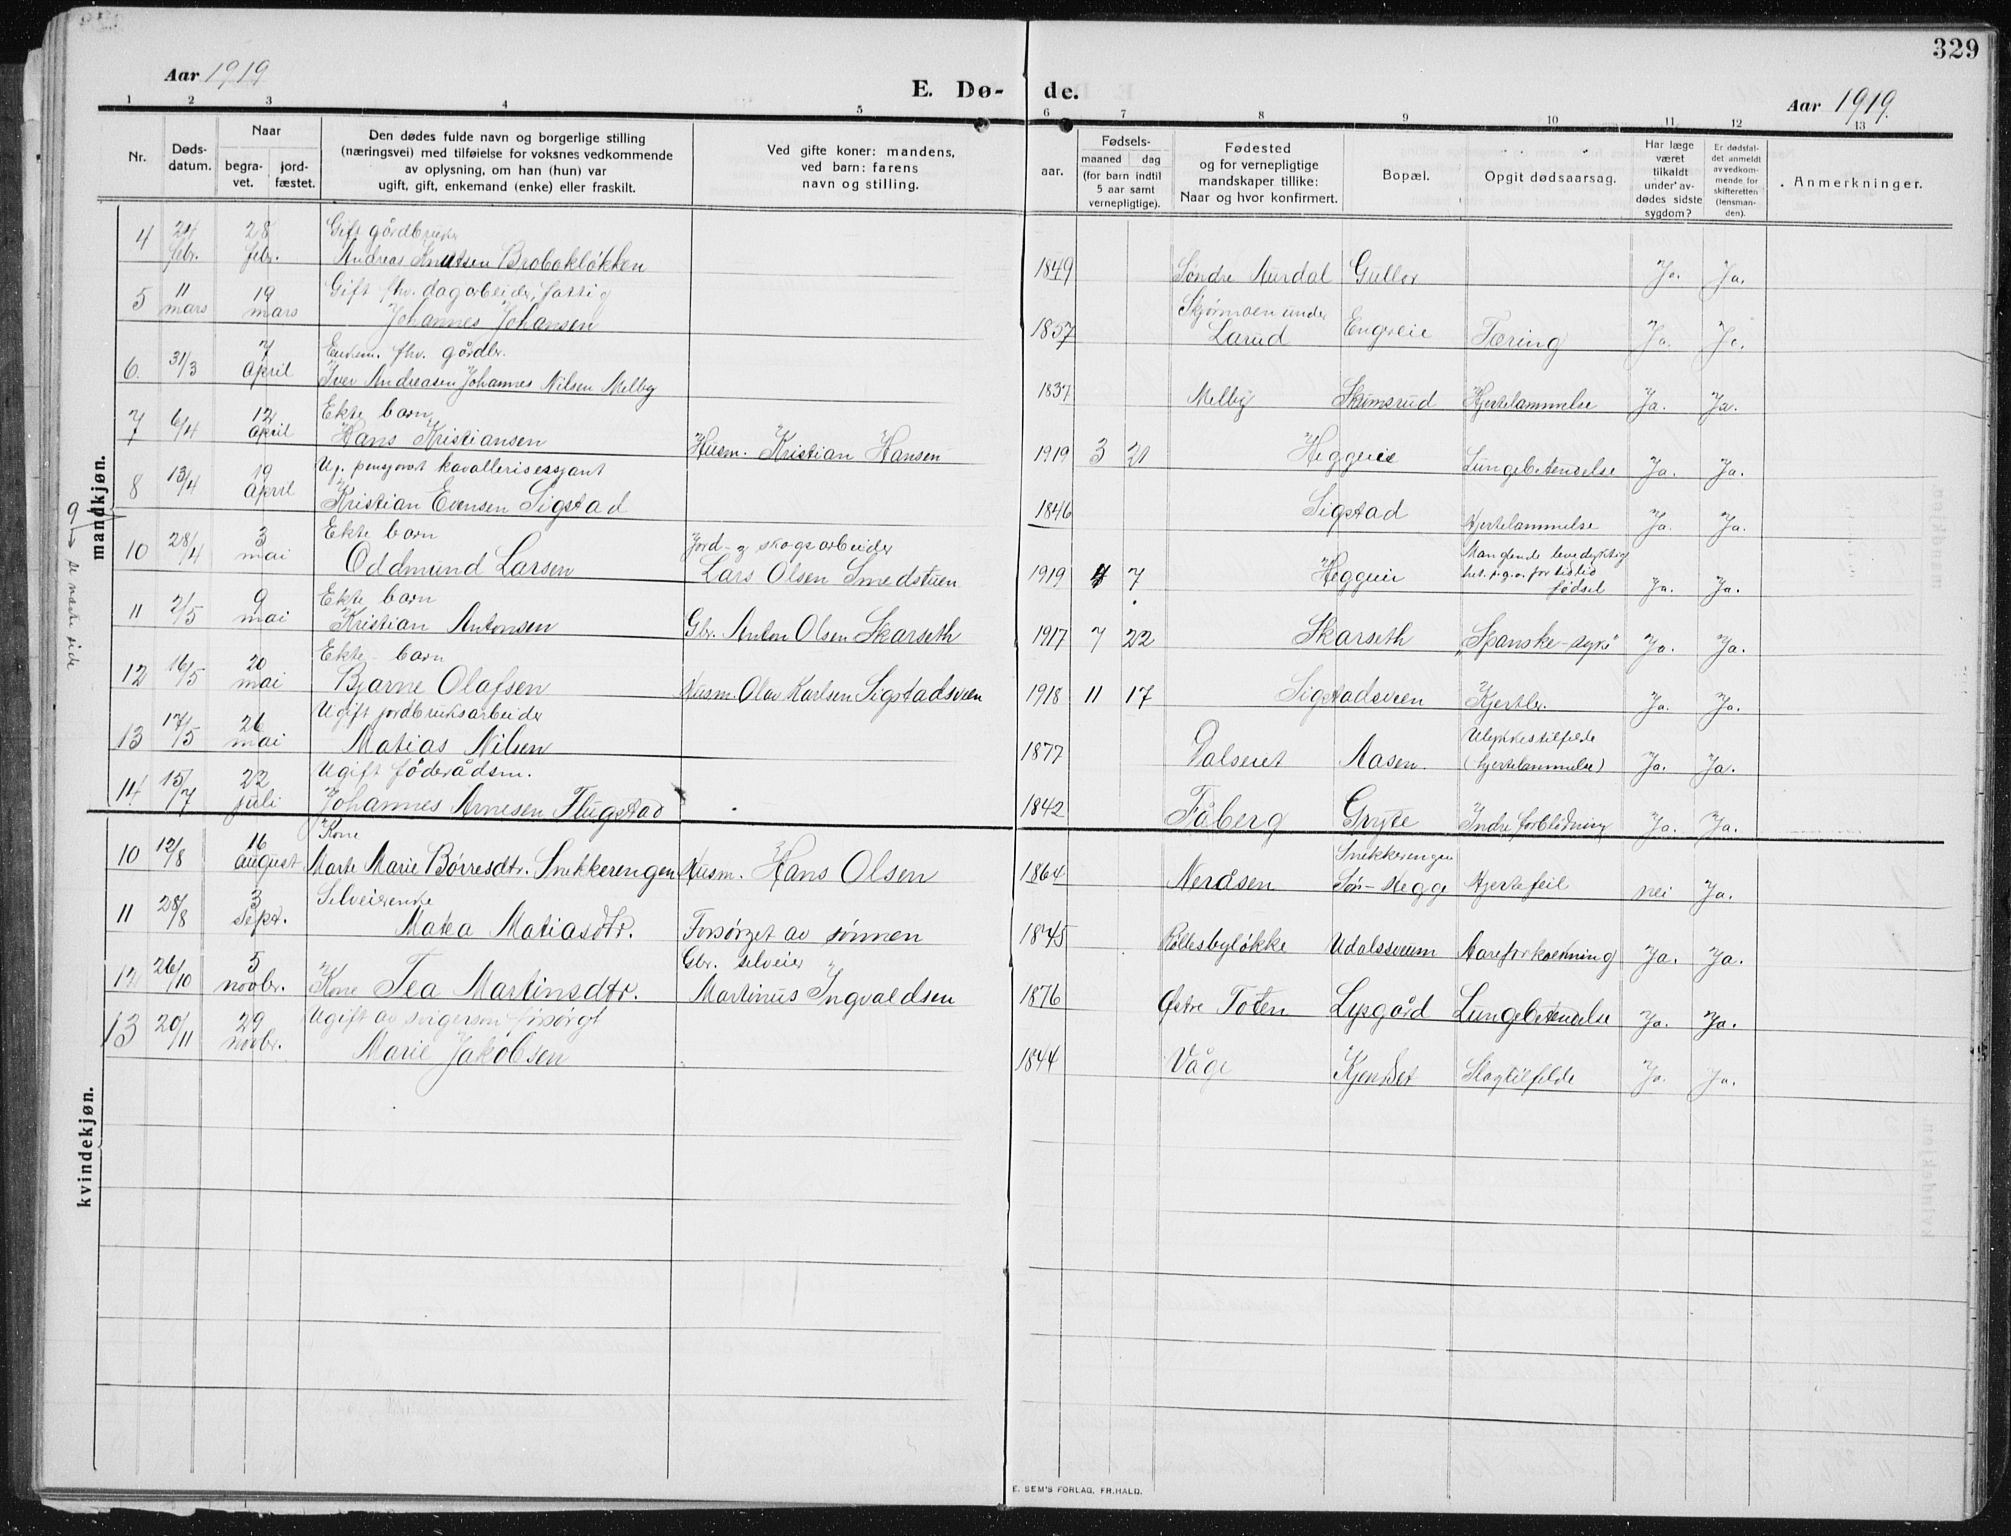 329
Aar 1919
E. Dø- de.
Aar 1919.
1 2 3 4 5 6 7 8 9 10 11 12 13
Nr.
Døds-
datum.
Naar
begra-
vet.
jord-
fæstet.
Den dødes fulde navn og borgerlige stilling
(næringsvei) med tilføielse for voksnes vedkommende
av oplysning, om han (hun) var
ugift, gift, enkemand (enke) eller fraskilt.
Ved gifte koner: mandens,
ved barn: farens
navn og stilling.
Fødsels-
aar.
maaned dag
(for barn indtil
5 aar samt
vernepligtige).
Fødested
og for vernepligtige
mandskaper tillike:
Naar og hvor konfirmert.
Bopæl.
Opgit dødsaarsag.
Har læge
været
tilkaldt
under av-
dødes sidste
sygdom?
Er dødsfal-
det anmeldt
av vedkom-
mende for
skifteretten
(lensman-
den).
Anmerkninger.
mandkjøn.
9 → se næste side
4 24 febr. 28 febr. Gift gårdbruker
Andreas Knutsen Brobakløkken 1849 Søndre Aurdal Guller Ja. Ja.
5 11 mars 19 mars Gift fhv. dagarbeider, fattig
Johannes Johansen 1857 Skjørmoen under
Larud Engveie Tæring Ja. Ja.
6. 31/3 7 April Enkem. fhv. gårdbr.
Iver Andreasen Johannes Nilsen Melby 1837 Melby Skumsrud Hjertelammelse Ja. Ja.
7 6/4 12 April Ekte barn
Hans Kristiansen Husm. Kristian Hansen 1919 3 21 Heggeie Lungebetendelse Ja. Ja.
8 13/4 19 April Ug. pensjonert kavallerisersjant
Kristian Evensen Sigstad 1846 Sigstad Hjertelammelse Ja. Ja.
10 28/4 3 mai Ekte barn
Oddmund Larsen Jord- og skogsarbeider
Lars Olsen Smedstuen 1919 4 7 Heggeie Manglende levedyktig-
het p.g.a. for tidlig
fødsel Ja. Ja.
11 2/5 9 mai Ekte barn
Kristian Antonsen Gbr. Anton Olsen Skarseth 1917 7 22 Skarseth „Spanske-syke" Ja. Ja.
12 16/5 20 mai Ekte barn
Bjarne Olafsen Husm. Olav Karlsen Sigstadsveen 1918 11 17 Sigstadsveen Kjertler. Ja. Ja.
13 17/5 26 mai Ugift jordbruksarbeider
Matias Nilsen 1877 Dalseiet Aasen Ulykkestilfelde
(hjertelammelse) Ja. Ja.
14 15/7 22 juli Ugift føderådsm.
Johannes Arnesen Flugstad 1842 Fåberg Gryte Indre forblødning Ja. Ja.
kvindekjøn.
10 12/8 16 august Kone
Marte Marie Børresdtr. Snekkerengen Husm. Hans Olsen 1864 Nerdsen Snekkerengen
Sør-Hegge Hjertefeil nei Ja.
11 28/8 3 Sept. Selveierenke
Matea Matiasdtr. Forsørget av sønnen 1845 Rollesbyløkke Udalssveum Aareforkalkning Ja. Ja.
12 26/10 5 novbr. Kone Tea Martinsdtr. Gbr. selveier
Martinus Ingvaldsen 1876 Østre Toten Lysgård Lungebetendelse Ja. Ja.
13 20/11 29 novbr. Ugift av svigersøn forsørgt
Marie Jakobsen 1844 Våge Kjendset Slagtilfelde Ja. Ja.
E. SEM'S FORLAG, FR.HALD.